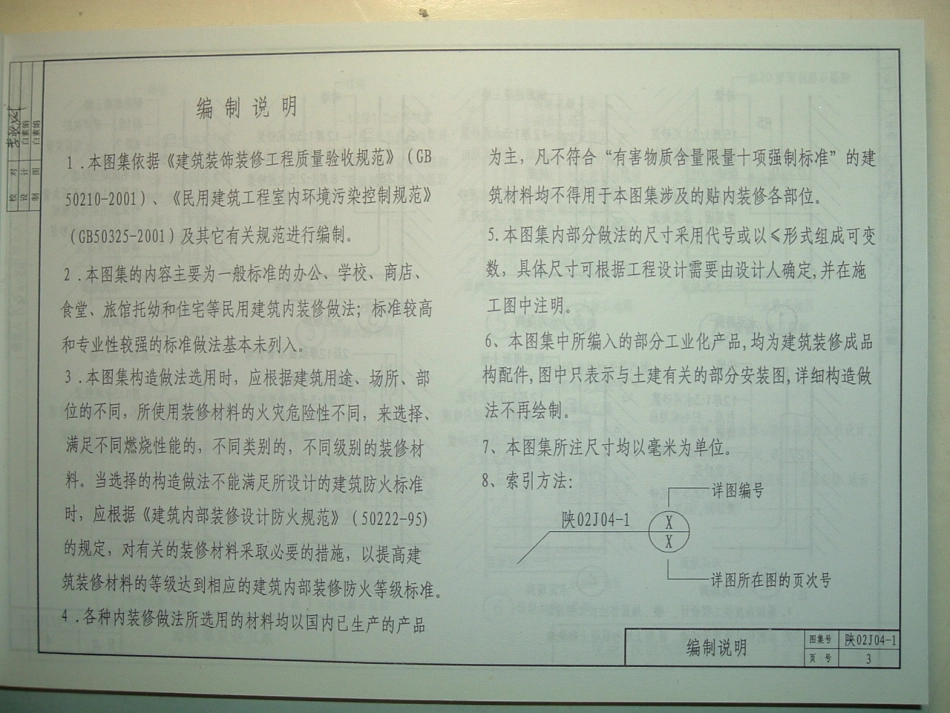 编制说明
1.本图集依据《建筑装饰装修工程质量验收规范》(GB
50210-2001)、《民用建筑工程室内环境污染控制规范》
(GB50325-2001)及其它有关规范进行编制。
2.本图集的内容主要为一般标准的办公、学校、商店、
食堂、旅馆托幼和住宅等民用建筑内装修做法；标准较高
和专业性较强的标准做法基本未列入。
3.本图集构造做法选用时，应根据建筑用途、场所、部
位的不同，所使用装修材料的火灾危险性不同，来选择、
满足不同燃烧性能的，不同类别的，不同级别的装修材
料。当选择的构造做法不能满足所设计的建筑防火标准
时，应根据《建筑内部装修设计防火规范》(50222-95)
的规定，对有关的装修材料采取必要的措施，以提高建
筑装修材料的等级达到相应的建筑内部装修防火等级标准。
4.各种内装修做法所选用的材料均以国内已生产的产品
为主，凡不符合“有害物质含量限量十项强制标准”的建
筑材料均不得用于本图集涉及的贴内装修各部位。
5.本图集内部分做法的尺寸采用代号或以≤形式组成可变
数，具体尺寸可根据工程设计需要由设计人确定,并在施
工图中注明。
6、本图集中所编入的部分工业化产品,均为建筑装修成品
构配件,图中只表示与土建有关的部分安装图,详细构造做
法不再绘制。
7、本图集所注尺寸均以毫米为单位。
8、索引方法:
详图编号
陕02J04-1
X
X
详图所在图的页次号
编制说明
图集号
陕02J04-1
页 号
3
校 对
设 计
制 图